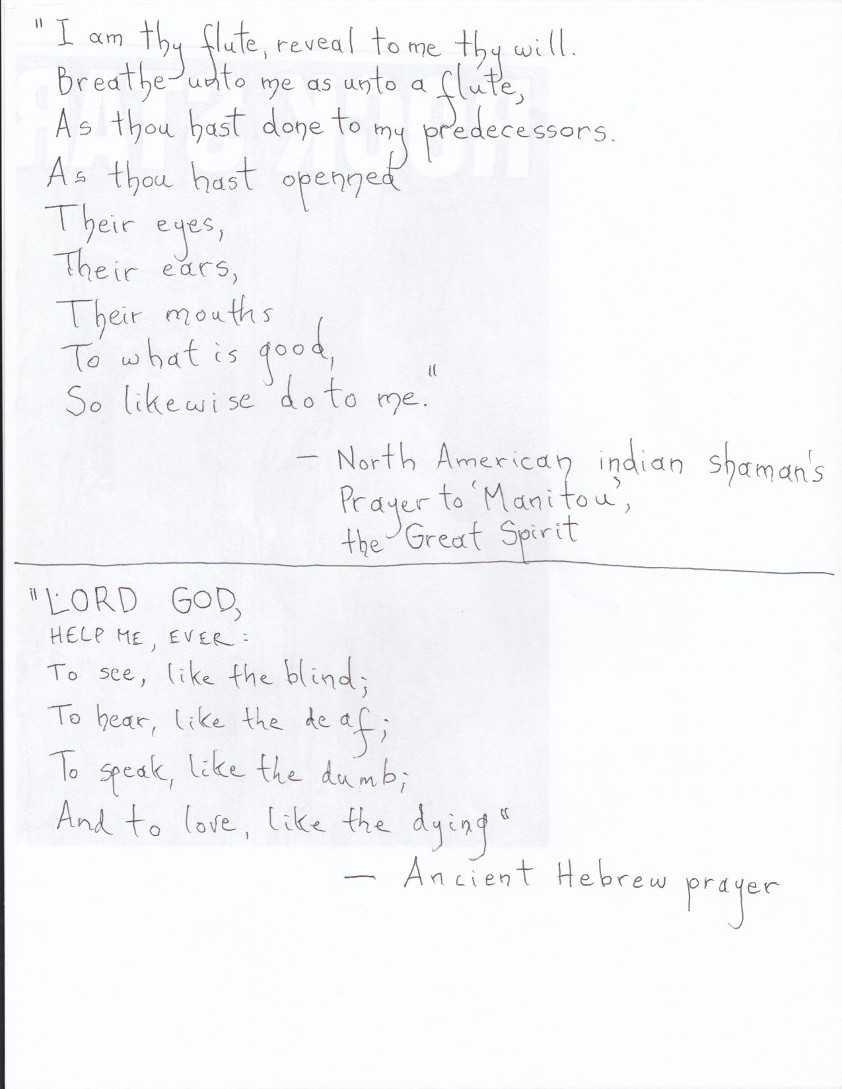 "I am thy flute, reveal to me thy will.
Breathe unto me as unto a flute,
As thou hast done to my predecessors.
As thou hast openned
Their eyes,
Their ears,
Their mouths
To what is good,
So likewise do to me."
— North American indian shaman's
Prayer to 'Manitou',
the Great Spirit
"LORD GOD,
HELP ME, EVER:
To see, like the blind;
To hear, like the deaf;
To speak, like the dumb;
And to love, like the dying"
— Ancient Hebrew prayer
ROCK STAR